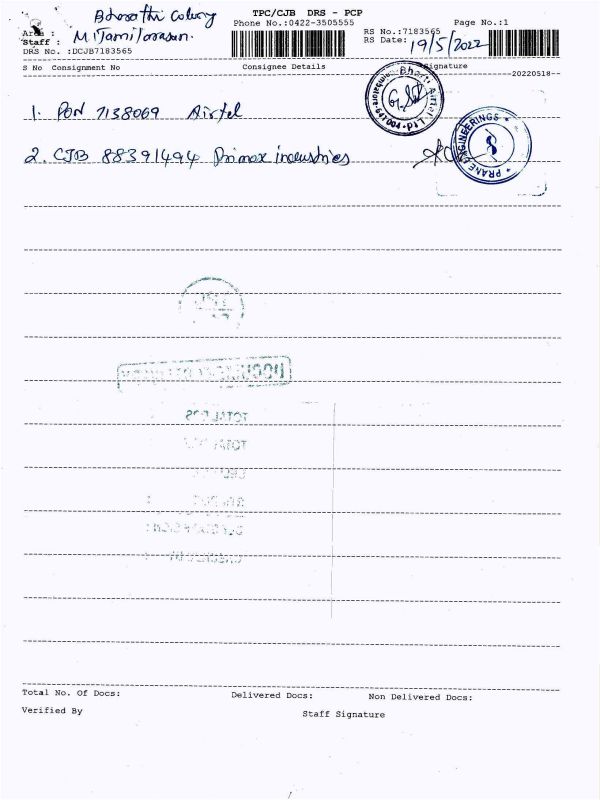 TPC/CJB DRS - PCP
Phone No.:0422-3505555 Page No.:1
Area : Bharathi Colony
Staff : M Tamilarasan.
RS No.:7183565
RS Date: 19/5/2022
DRS No. :DCJB7183565
S No Consignment No Consignee Details Signature
20220518--
1. PON 7138069 Airtel
Bharti Airtel
641 004
2. CJB 88391494 Primax industries
PRANE ENGINEERINGS
TOTAL DOS
TOTAL
Total No. Of Docs: Delivered Docs: Non Delivered Docs:
Verified By Staff Signature